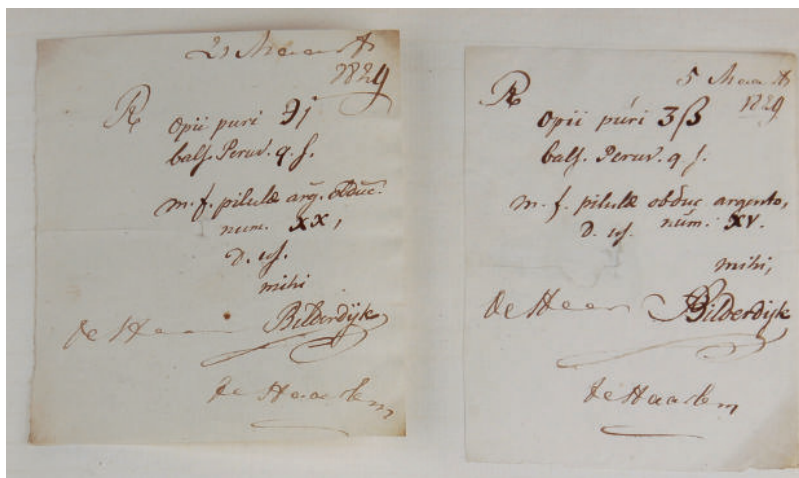 21 Maart
1829
℞
opii puri ℈j
bals. Peruv. q. s.
m. f. pilulæ arg. obduc.
num. XX,
D.
mihi
de Heer Bilderdijk
te Haarlem
5 Maart
1829
℞
opii púri ʒß
bals. Peruv. q. s.
m. f. pilulæ obduc argento,
D. núm. XV.
mihi,
de Heer Bilderdijk
te Haarlem